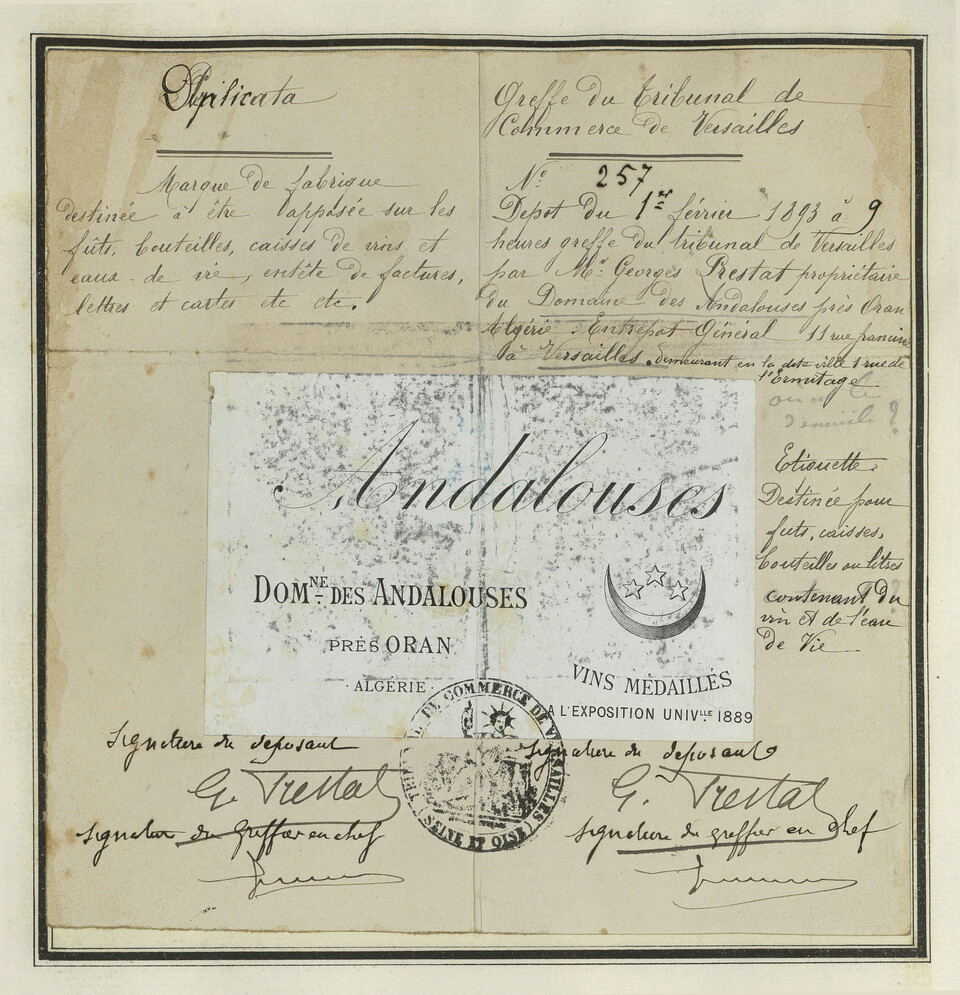 Duplicata
Marque de fabrique
destinée à être apposée sur les
fûts, bouteilles, caisses de vins et
eaux-de vie, entête de factures,
lettres et cartes etc etc.
Greffe du Tribunal de
Commerce de Versailles
No 257
Depot du 1er février 1893 à 9
heures greffe du tribunal de Versailles
par Mr Georges Prestat propriétaire
du Domaine des Andalouses près Oran
Algérie. Entrepôt Général 11 rue
à Versailles. demeurant en la dite ville 1 rue de
l'Ermitage
domicile ?
Etiquette
Destinée pour
futs, caisses,
bouteilles ou litres
contenant du
vin et de l'eau
de Vie
Andalouses
DOMNE DES ANDALOUSES
PRÈS ORAN
ALGÉRIE
VINS MÉDAILLÉS
A L'EXPOSITION UNIVLLE 1889
TRIBUNAL DE COMMERCE DE VERSAILLES
(SEINE ET OISE)
Signature du deposant
G. Prestat
Signature du Greffier en chef
signature du deposant
G. Prestat
signature du greffier en chef